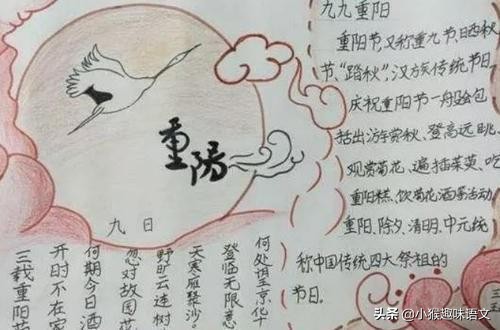 重陽
九日
三载重阳
开时不在家
何期今日酒
忽对故园花
野旷云连树
天寒雁聚沙
登临无限意
何处望京华
九九重阳
重阳节,又称重九节、晒秋
节、“踏秋”,汉族传统节日。
庆祝重阳节一般会包
括出游赏秋、登高远眺、
观赏菊花、遍插茱萸、吃
重阳糕、饮菊花酒等活动
重阳、除夕、清明、中元统
称中国传统四大祭祖的
节日.
头条 @小猴趣味语文